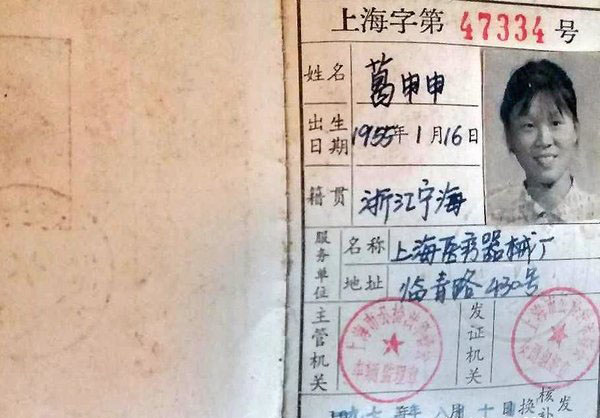 上海字第 47334 号
姓名 葛申申
出生日期 1955年1月16日
籍贯 浙江宁海
服务单位 名称 上海医疗器械厂
地址 临青路430号
主管机关 发证机关
年八月十日 换补 核发